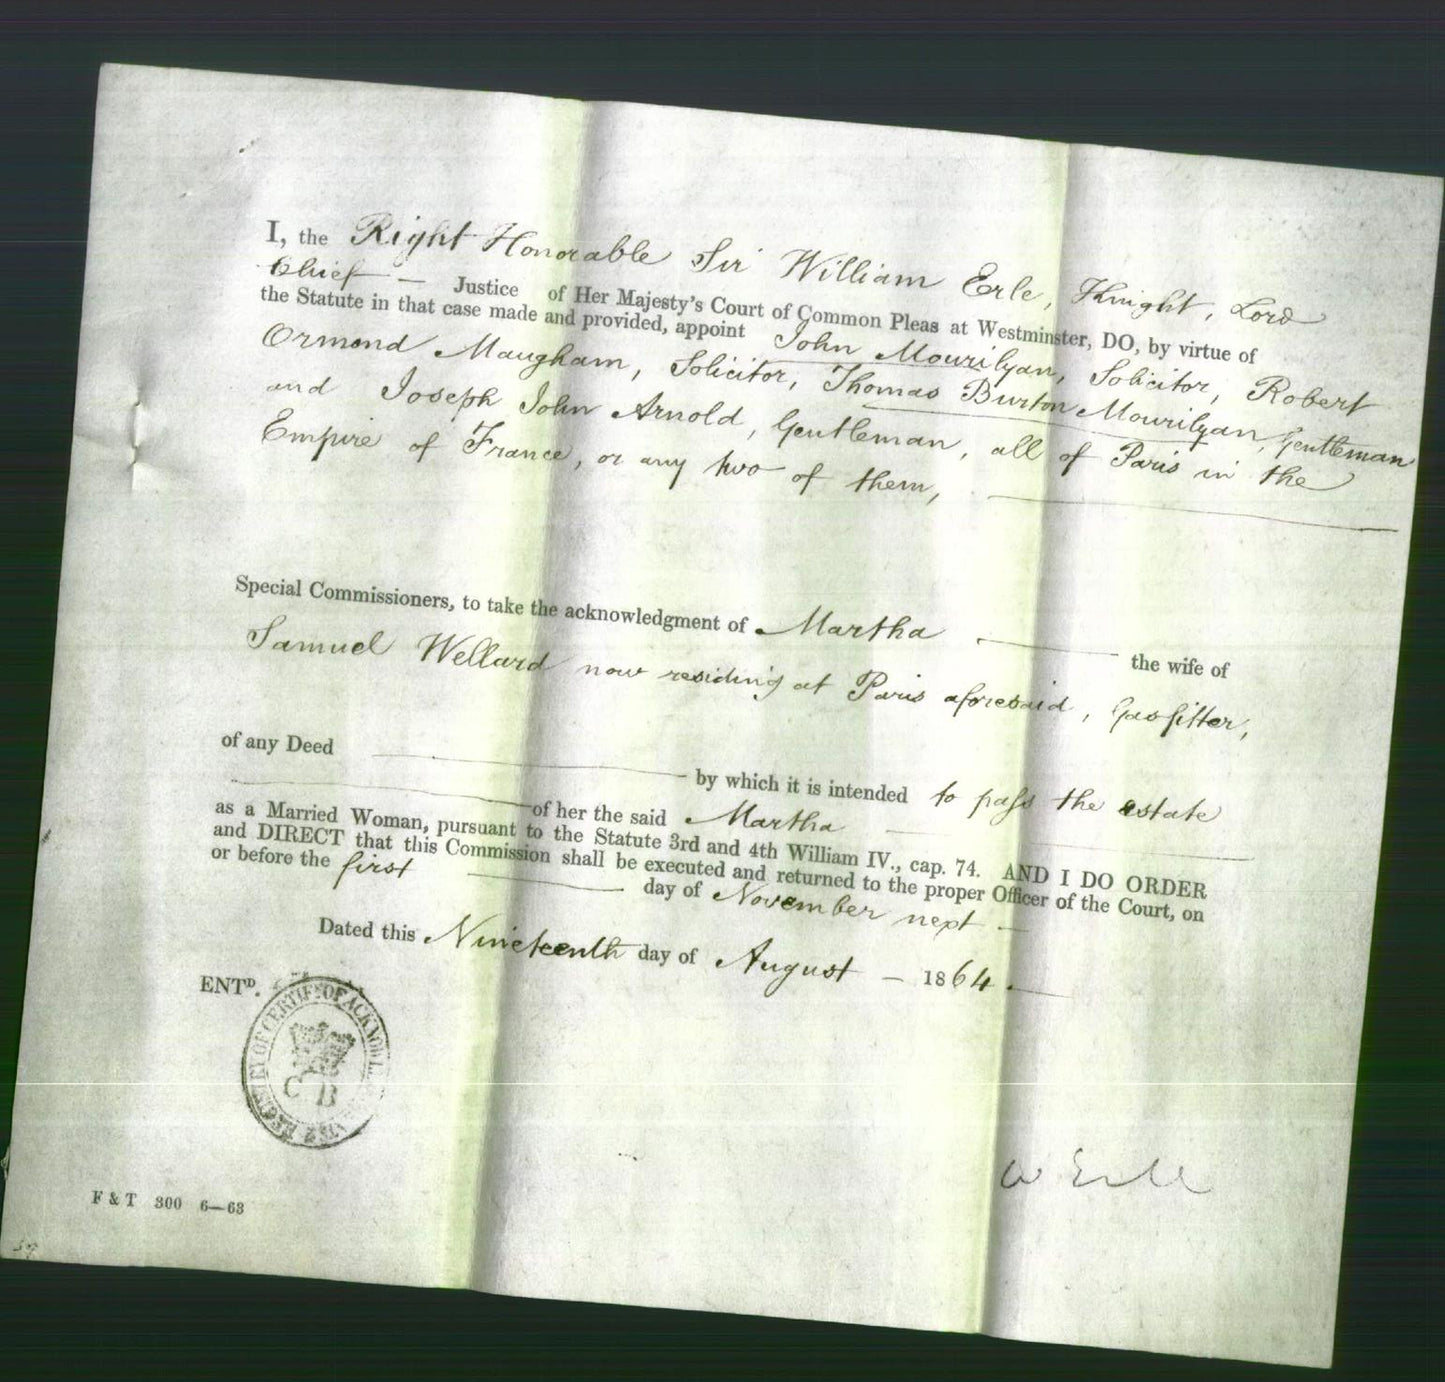 I, the Right Honorable Sir William Erle, Knight, Lord
Chief — Justice of Her Majesty's Court of Common Pleas at Westminster, DO, by virtue of
the Statute in that case made and provided, appoint John Mourilyan, Solicitor, Robert
Ormond Maugham, Solicitor, Thomas Burton Mourilyan, Gentleman
and Joseph John Arnold, Gentleman, all of Paris in the
Empire of France, or any two of them,
Special Commissioners, to take the acknowledgment of Martha the wife of
Samuel Wellard now residing at Paris aforesaid, Gasfitter,
of any Deed by which it is intended to pass the estate
of her the said Martha
as a Married Woman, pursuant to the Statute 3rd and 4th William IV., cap. 74. AND I DO ORDER
and DIRECT that this Commission shall be executed and returned to the proper Officer of the Court, on
or before the first day of November next —
Dated this Nineteenth day of August — 1864.
ENTD.
REGISTRY OF CERTIFS OF ACKNOWL
C B
W Erle
F & T 300 6—63